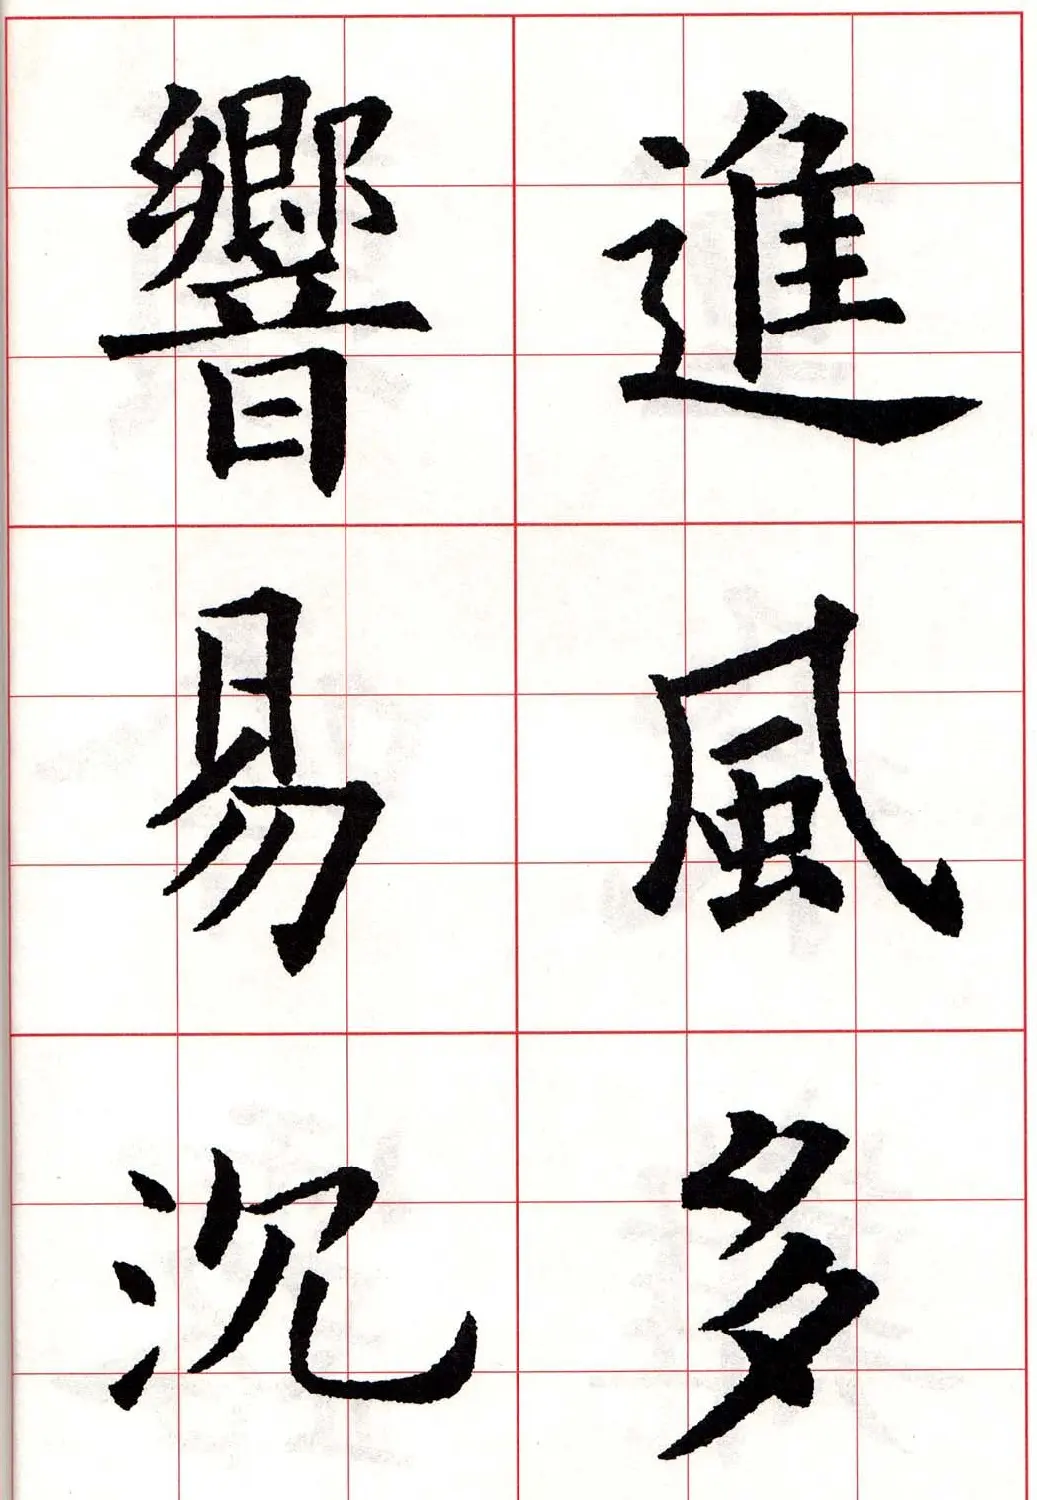 進風多
響易沉